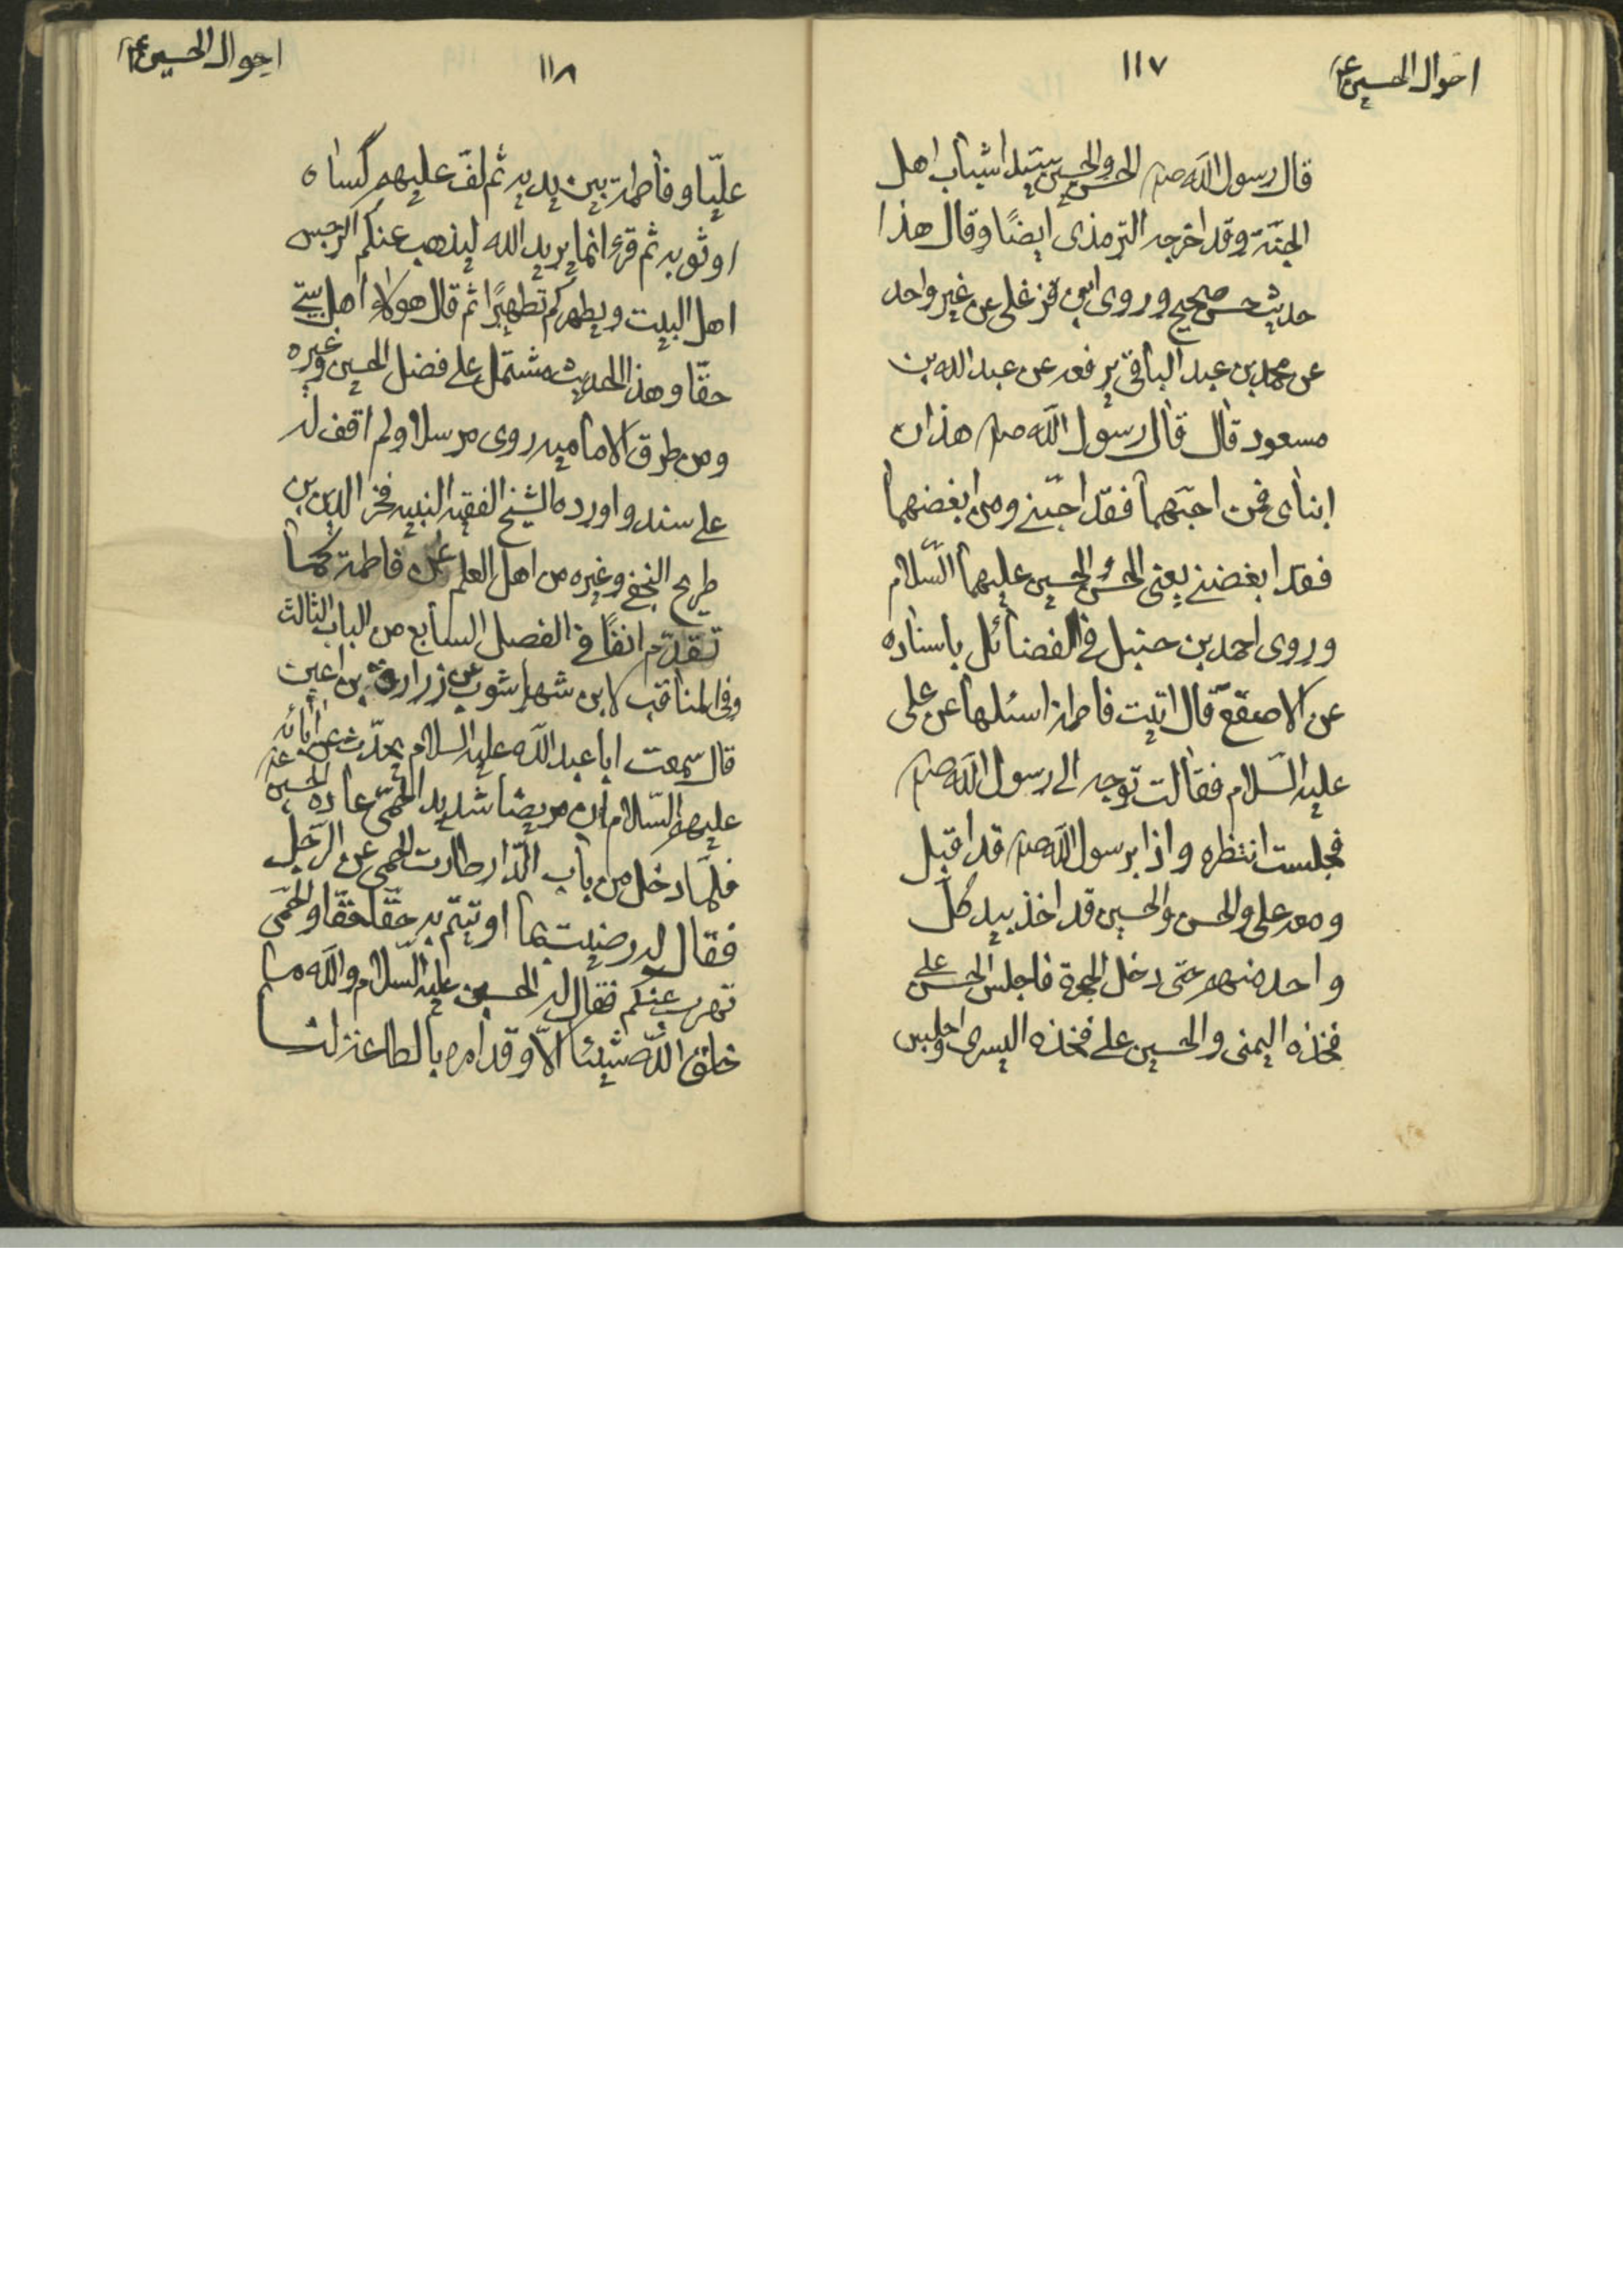 احوال الحسين ع
١١٧
قال رسول الله ص الحسن والحسين سيدا شباب اهل
الجنّة وقد اخرجه الترمذى ايضًا وقال هذا
حديث حسن صحيح وروى ابن قزغلى عن غير واحد
عن محمد بن عبد الباقى يرفعه عن عبد الله بن
مسعود قال قال رسول الله ص هذان
ابناى فمن احبّهما فقد احبّنى ومن ابغضهما
فقد ابغضنى يعنى الحسن والحسين عليهما السّلام
وروى احمد بن حنبل فى الفضائل باسناده
عن الاصقع قال اتيت فاطمة اسئلها عن على
عليه السّلام فقالت توجه الى رسول الله ص
فجلست انتظره واذا برسول الله ص قد اقبل
ومعه على والحسن والحسين قد اخذ بيد كل
واحد منهم حتى دخل الحجرة فاجلس الحسن على
فخذه اليمنى والحسين على فخذه اليسرى واجلس
احوال الحسين ع
١١٨
عليّا وفاطمة بين يديه ثم لفّ عليهم كساه
او ثوبه ثم قرء انما يريد الله ليذهب عنكم الرجس
اهل البيت ويطهركم تطهيرًا ثم قال هولاء اهل بيتى
حقّا وهذا الحديث مشتمل على فضل الحسين وغيره
ومن طرق الاماميه روى مرسلا ولم اقف له
على سند واورده الشيخ الفقيه النبيه فخر الدين بن
طريح النجفى وغيره من اهل العلم عن فاطمة كما
تقدّم انفًا فى الفصل السابع من الباب الثالث
وفى المناقب لابن شهراشوب عن زرارة بن اعين
قال سمعت ابا عبد الله عليه السلام يحدّث عن ابائه
عليهم السّلام ان مريضا شديد الحمّى عاده الحسين ع
فلمّا دخل من باب الدّار طارت الحمى عن الرّجل
فقال له رضيت بما اوتيتم به حقّا حقّا والحمّى
تهرب عنكم فقال له الحسين عليه السّلام والله ما
خلق الله شيئا الاّ وقد امره بالطاعة لنا